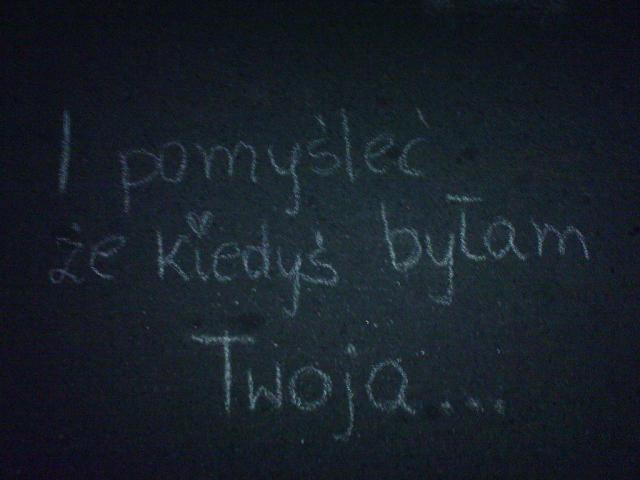 I pomyśleć
że kiedyś byłam
Twoja...